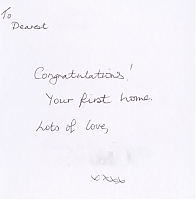 To
Dearest
Congratulations!
Your first home.
Lots of love,
xxxx